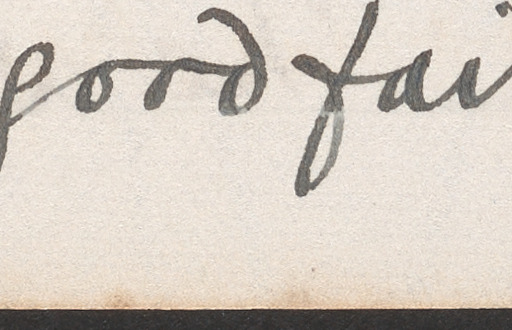 good fai